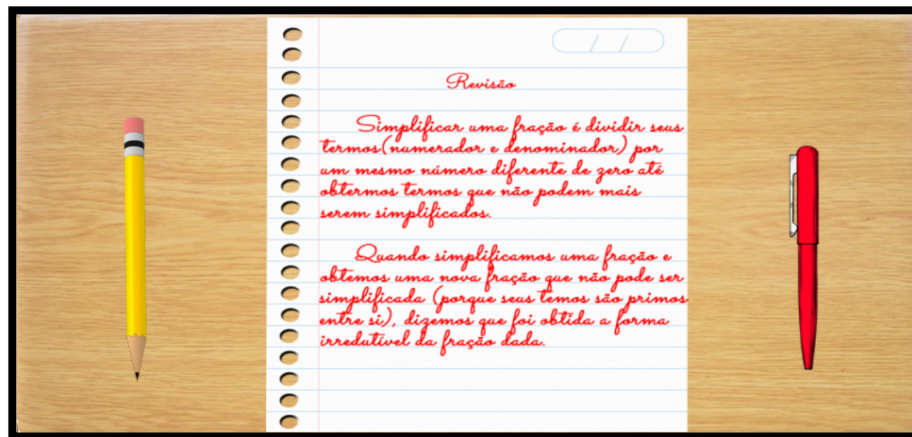 / /
Revisão
Simplificar uma fração é dividir seus
termos(numerador e denominador) por
um mesmo número diferente de zero até
obtermos termos que não podem mais
serem simplificados.
Quando simplificamos uma fração e
obtemos uma nova fração que não pode ser
simplificada (porque seus temos são primos
entre si), dizemos que foi obtida a forma
irredutível da fração dada.